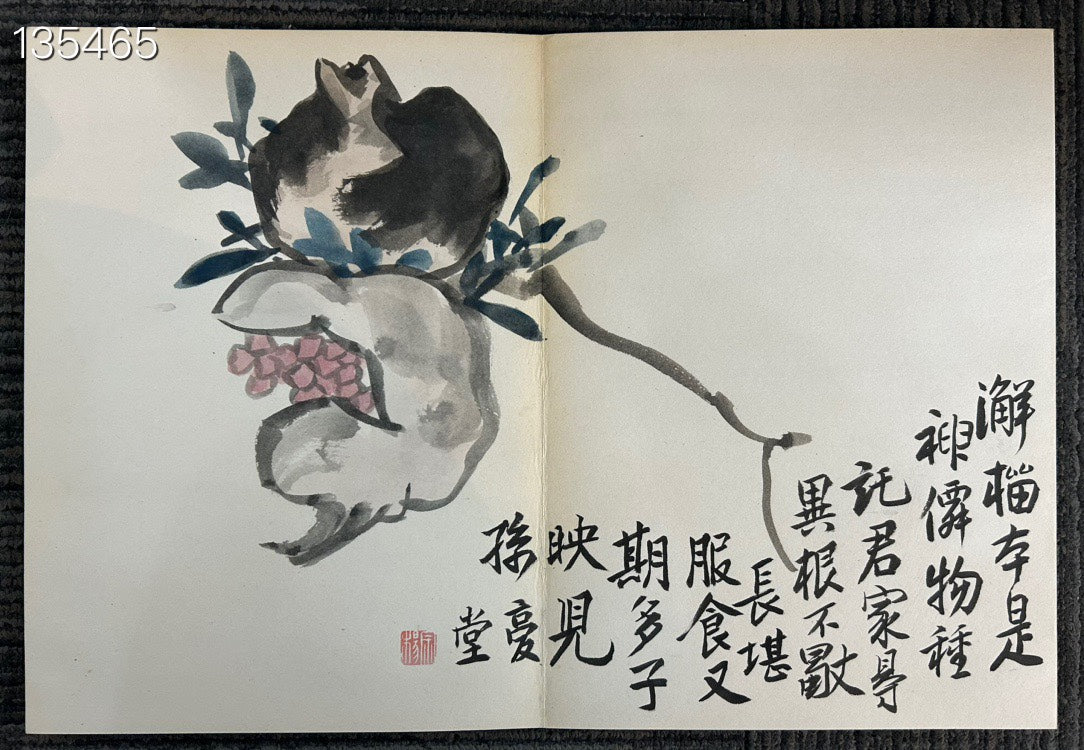 135465
澥榴本是
神僊物種
託君家㝵
異根不
長堪
服食又
期多子
映兒
孫
堂